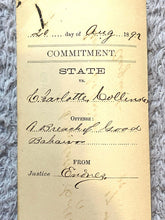 26 day of Aug 1892
COMMITMENT.
STATE
vs.
Charlotte Collins
OFFENSE:
A. Breachy Good
Bahaivor
FROM
Justice